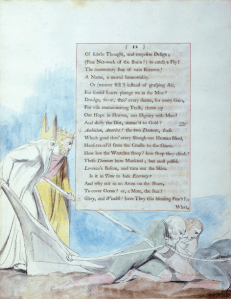 ( 12 )
Of subtle Thought, and exquisite Design;
(Fine Net-work of the Brain!) to catch a Fly!
The momentary Buz of vain Renown!
A Name, a mortal Immortality.
Or (meaner still!) instead of grasping Air,
For sordid Lucre plunge we in the Mire?
Drudge, sweat, thro' every shame, for every Gain,
For vile contaminating Trash; throw up
Our Hope in Heaven, our Dignity with Man?
And deify the Dirt, matur'd to Gold?
Ambition, Avarice! the two Dæmons, these
Which goad thro' every Slough our Human Herd,
Hard-travel'd from the Cradle to the Grave.
How low the Wretches stoop? how steep they climb?
These Dæmons burn Mankind; but most possess
Lorenzo's Bosom, and turn out the Skies.
Is it in Time to hide Eternity?
And why not in an Atom on the Shore,
To cover Ocean? or, a Mote, the Sun?
Glory, and Wealth! have They this blinding Pow'r?
What,